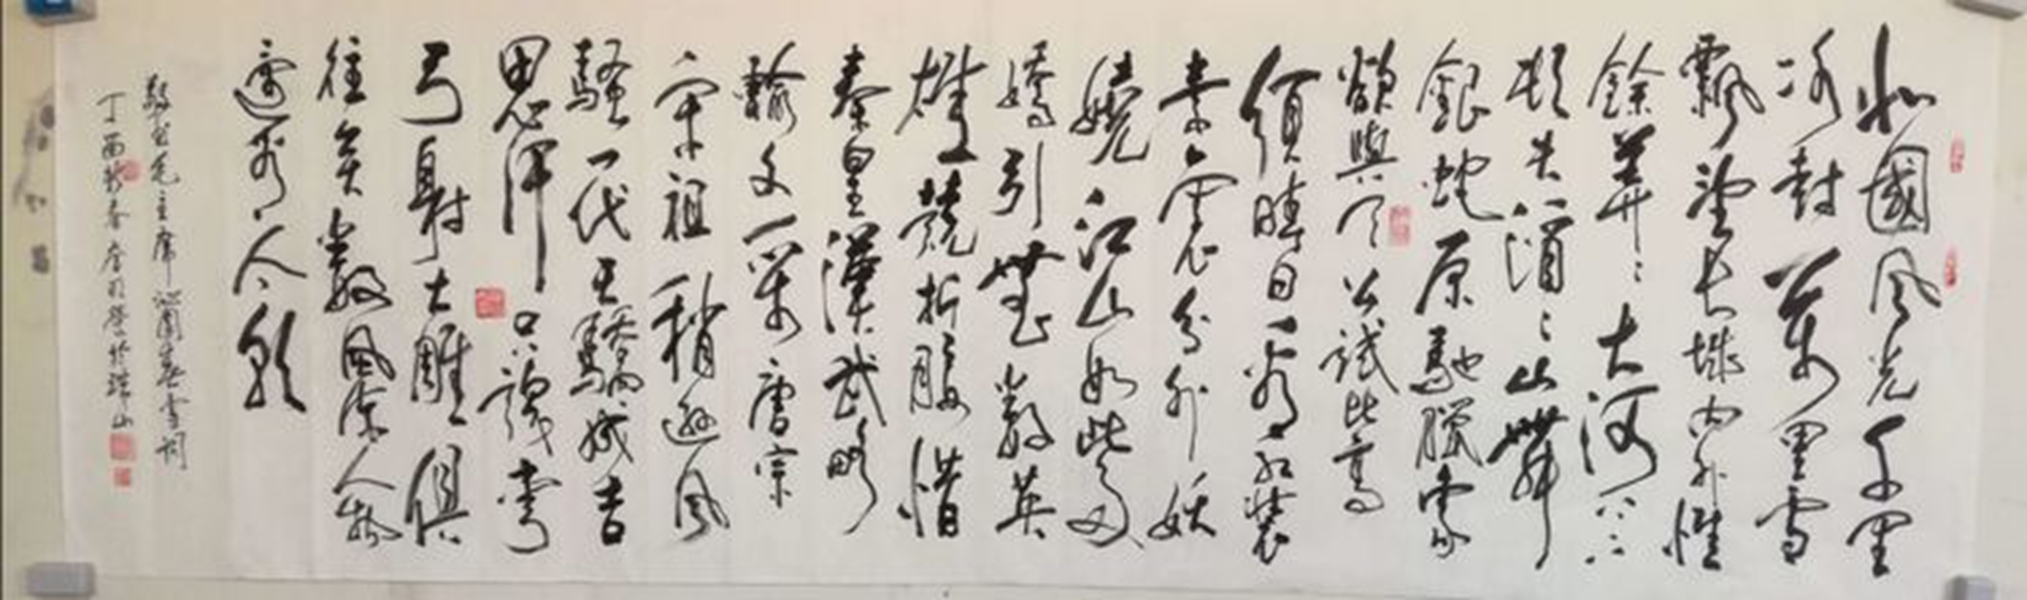 北國風光千里
冰封萬里雪
飄望長城內外惟
餘莽〻大河上下
頓失滔〻山舞
銀蛇原馳臘象
欲與天公試比高
須晴日看紅裝
素裹分外妖
嬈江山如此多
嬌引無數英
雄競折腰惜
秦皇漢武略
輸文采唐宗
宋祖稍遜風
騷一代天驕成吉
思汗只識彎
弓射大雕俱
往矣數風流人物
還看今朝
敬書毛主席沁園春雪詞
丁酉新春